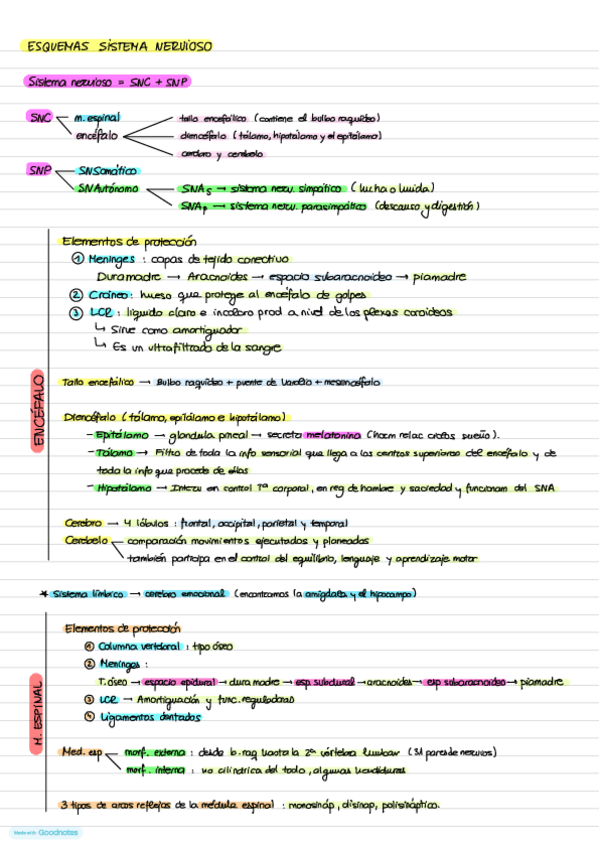 ESQUEMAS SISTEMA NERVIOSO
Sistema nervioso = SNC + SNP
SNC m. espinal tallo encefálico (contiene el bulbo raquídeo)
encéfalo diencéfalo (tálamo, hipotálamo y el epitálamo)
cerebro y cerebelo
SNP SNSomático
SNAutónomo SNAs → sistema nerv. simpático (lucha o huida)
SNAp → sistema nerv. parasimpático (descanso y digestión)
ENCÉFALO
Elementos de protección
1 Meninges : capas de tejido conectivo
Duramadre → Aracnoides → espacio subaracnoideo → piamadre
2 Cráneo: hueso que protege al encéfalo de golpes
3 LCR : líquido claro e incoloro prod a nivel de los plexos coroideos
↳ Sirve como amortiguador
↳ Es un ultrafiltrado de la sangre
Tallo encefálico → Bulbo raquídeo + puente de Varolio + mesencéfalo
Diencéfalo (tálamo, epitálamo e hipotálamo)
- Epitálamo → glándula pineal → secreta melatonina (horm relac ciclos sueño).
- Tálamo → Filtro de toda la info sensorial que llega a los centros superiores del encéfalo y de
toda la info que procede de ellos
- Hipotálamo → Interv en control Tª corporal, en reg de hambre y saciedad y funcionam del SNA
Cerebro → 4 lóbulos : frontal, occipital, parietal y temporal
Cerebelo comparación movimientos ejecutados y planeados
también participa en el control del equilibrio, lenguaje y aprendizaje motor
* Sistema límbico → cerebro emocional (encontramos la amígdala y el hipocampo)
M. ESPINAL
Elementos de protección
1 Columna vertebral : tipo óseo
2 Meninges :
T. óseo → espacio epidural → dura madre → esp. subdural → aracnoides → esp. subaracnoideo → piamadre
3 LCR → Amortiguación y func. reguladoras
4 Ligamentos dentados
Med. esp morf. externa : desde b. raq hasta la 2ª vértebra lumbar (31 pares de nervios)
morf. interna : no cilíndrica del todo, algunas hendiduras
3 tipos de arcos reflejos de la médula espinal : monosináp, disináp, polisináptico.
Made with Goodnotes